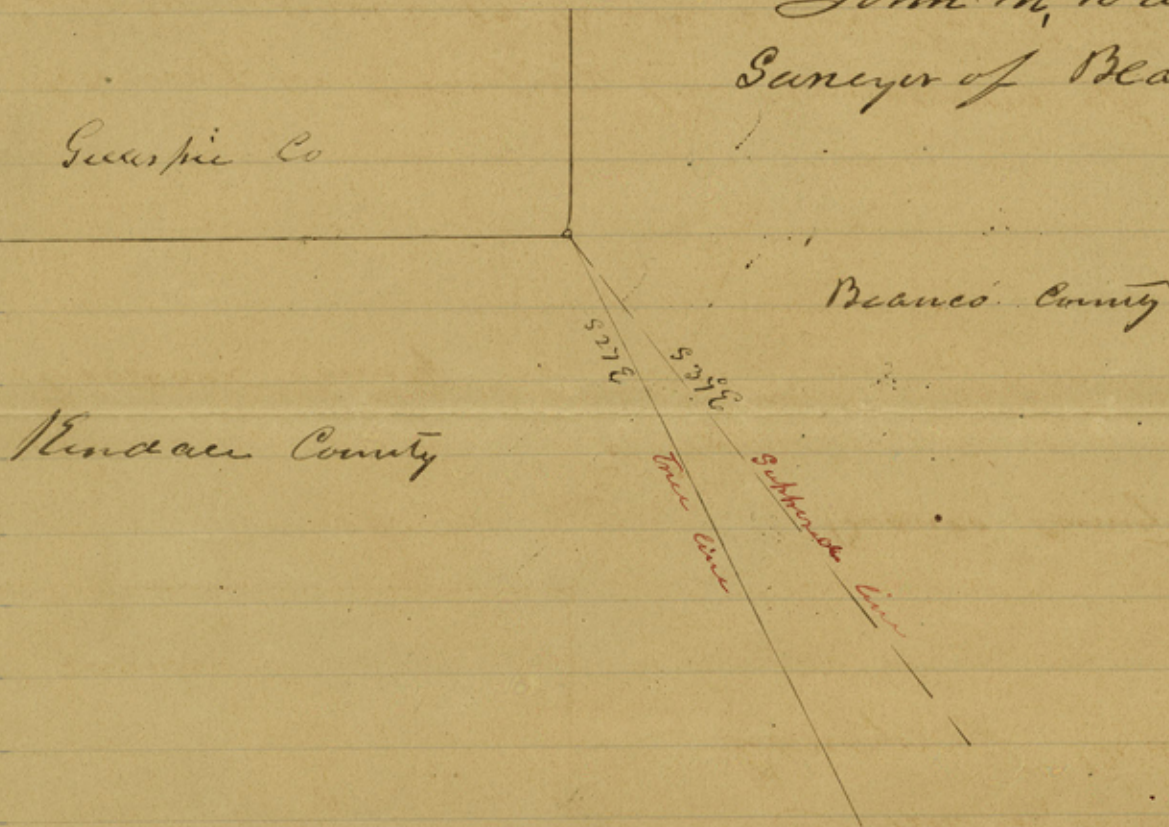 John M.
Surveyor of Bla
Gillespie Co
Blanco County
S27E
S37°E
Kendall County
True line
Supposed line